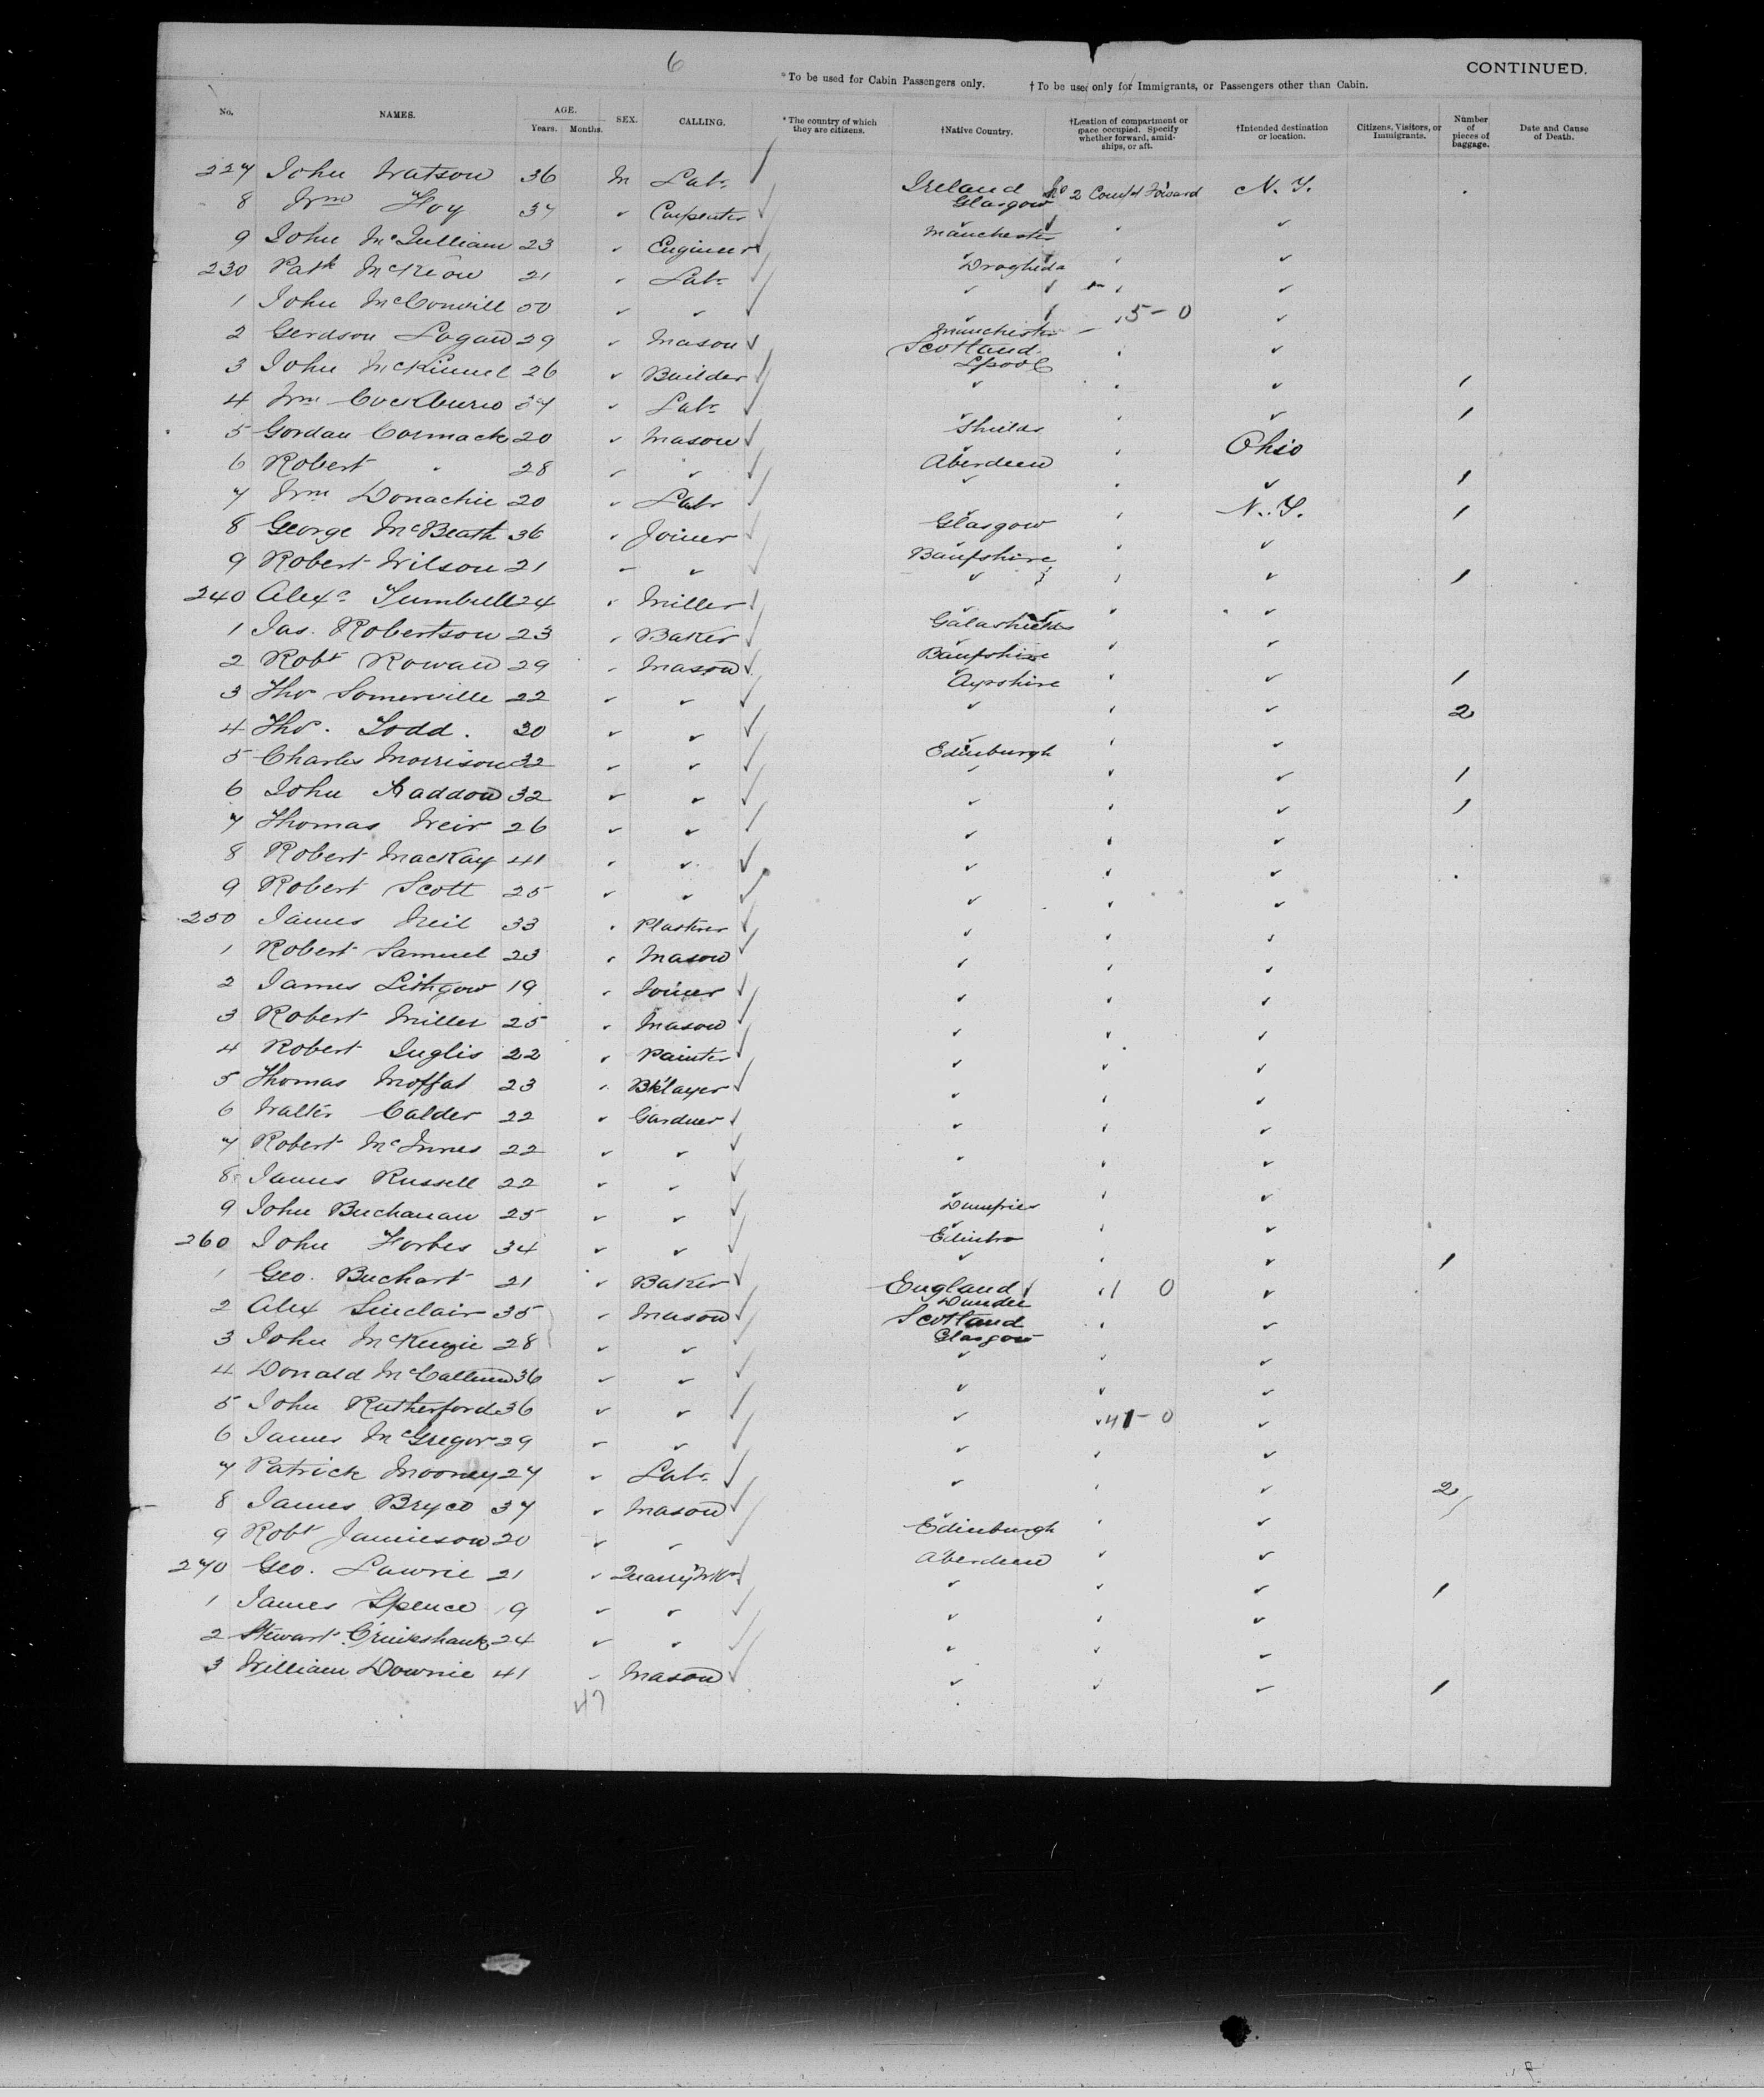 6
CONTINUED.
*To be used for Cabin Passengers only. †To be used only for Immigrants, or Passengers other than Cabin.
No. NAMES. AGE. Years. Months. SEX. CALLING. *The country of which they are citizens. †Native Country. †Location of compartment or space occupied. Specify whether forward, amidships, or aft. †Intended destination or location. Citizens, Visitors, or Immigrants. Number of pieces of baggage. Date and Cause of Death.
227 John Watson 36 M Labr. ✓ Ireland Glasgow No 2 Compt Forward N.Y.
8 Wm Hoy 37 ✓ Carpenter ✓ Manchester ✓
9 John McQulliam 23 ✓ Engineer ✓ Drogheda ✓
230 Patk McKeow 21 ✓ Labr ✓ ✓ ✓
1 John McConvill 50 ✓ ✓ ✓ ✓ 5-0 ✓
2 Gerdson Logan 29 ✓ Mason ✓ Manchester Scotland ✓
3 John McKinnel 26 ✓ Builder ✓ Lpool ✓ 1
4 Wm Cockburn ✓ Labr ✓ ✓ ✓ 1
5 Gordan Cormack 20 ✓ Mason ✓ Shields Ohio
6 Robert " 28 ✓ ✓ ✓ Aberdeen ✓ 1
7 Wm Donachie 20 ✓ Labr ✓ ✓ N.Y. 1
8 George McBeath 36 ✓ Joiner ✓ Glasgow ✓
9 Robert Wilson 21 ✓ ✓ ✓ Banfshire ✓ 1
240 Alexr Turnbull 24 ✓ Miller ✓ Galashiels ✓
1 Jas. Robertson 23 ✓ Baker ✓ Banfshire ✓
2 Robt Rowan 29 ✓ Mason ✓ Ayrshire ✓ 1
3 Thos Somerville 22 ✓ ✓ ✓ ✓ ✓ 2
4 Thos. Todd. 30 ✓ ✓ ✓ Edinburgh ✓
5 Charles Morrison 32 ✓ ✓ ✓ ✓ ✓ 1
6 John Haddow 32 ✓ ✓ ✓ ✓ ✓ 1
7 Thomas Weir 26 ✓ ✓ ✓ ✓ ✓
8 Robert MacKay 41 ✓ ✓ ✓ ✓ ✓
9 Robert Scott 25 ✓ ✓ ✓ ✓ ✓
250 James Neil 33 ✓ Plasterer ✓ ✓ ✓
1 Robert Samuel 23 ✓ Mason ✓ ✓ ✓
2 James Lithgow 19 ✓ Joiner ✓ ✓ ✓
3 Robert Miller 25 ✓ Mason ✓ ✓ ✓
4 Robert Inglis 22 ✓ Painter ✓ ✓ ✓
5 Thomas Moffat 23 ✓ Bk'layer ✓ ✓ ✓
6 Walter Calder 22 ✓ Gardner ✓ ✓ ✓
7 Robert McInnes 22 ✓ ✓ ✓ ✓ ✓
8 James Russell 22 ✓ ✓ ✓ Dumfries ✓
9 John Buchanan 25 ✓ ✓ ✓ Edinbro ✓
260 John Forbes 34 ✓ ✓ ✓ ✓ ✓ 1
1 Geo. Buchart 21 ✓ Baker ✓ England Dundee 1 0 ✓
2 Alex Sinclair 35 ✓ Mason ✓ Scotland Glasgow ✓
3 John McKenzie 28 ✓ ✓ ✓ ✓ ✓
4 Donald McCallum 36 ✓ ✓ ✓ ✓ ✓
5 John Rutherford 36 ✓ ✓ ✓ ✓ 41-0 ✓
6 James McGregor 29 ✓ ✓ ✓ ✓ ✓
7 Patrick Mooney 27 ✓ Labr. ✓ ✓ ✓ 2
8 James Bryce 37 ✓ Mason ✓ Edinburgh ✓
9 Robt Jamieson 20 ✓ ✓ ✓ Aberdeen ✓
270 Geo. Lawrie 21 ✓ ✓ ✓ ✓ 1
1 James Spence 19 ✓ ✓ ✓ ✓ ✓
2 Stewart Cruikshank 24 ✓ ✓ ✓ ✓ ✓
3 William Downie 41 ✓ Mason ✓ ✓ ✓ 1
47